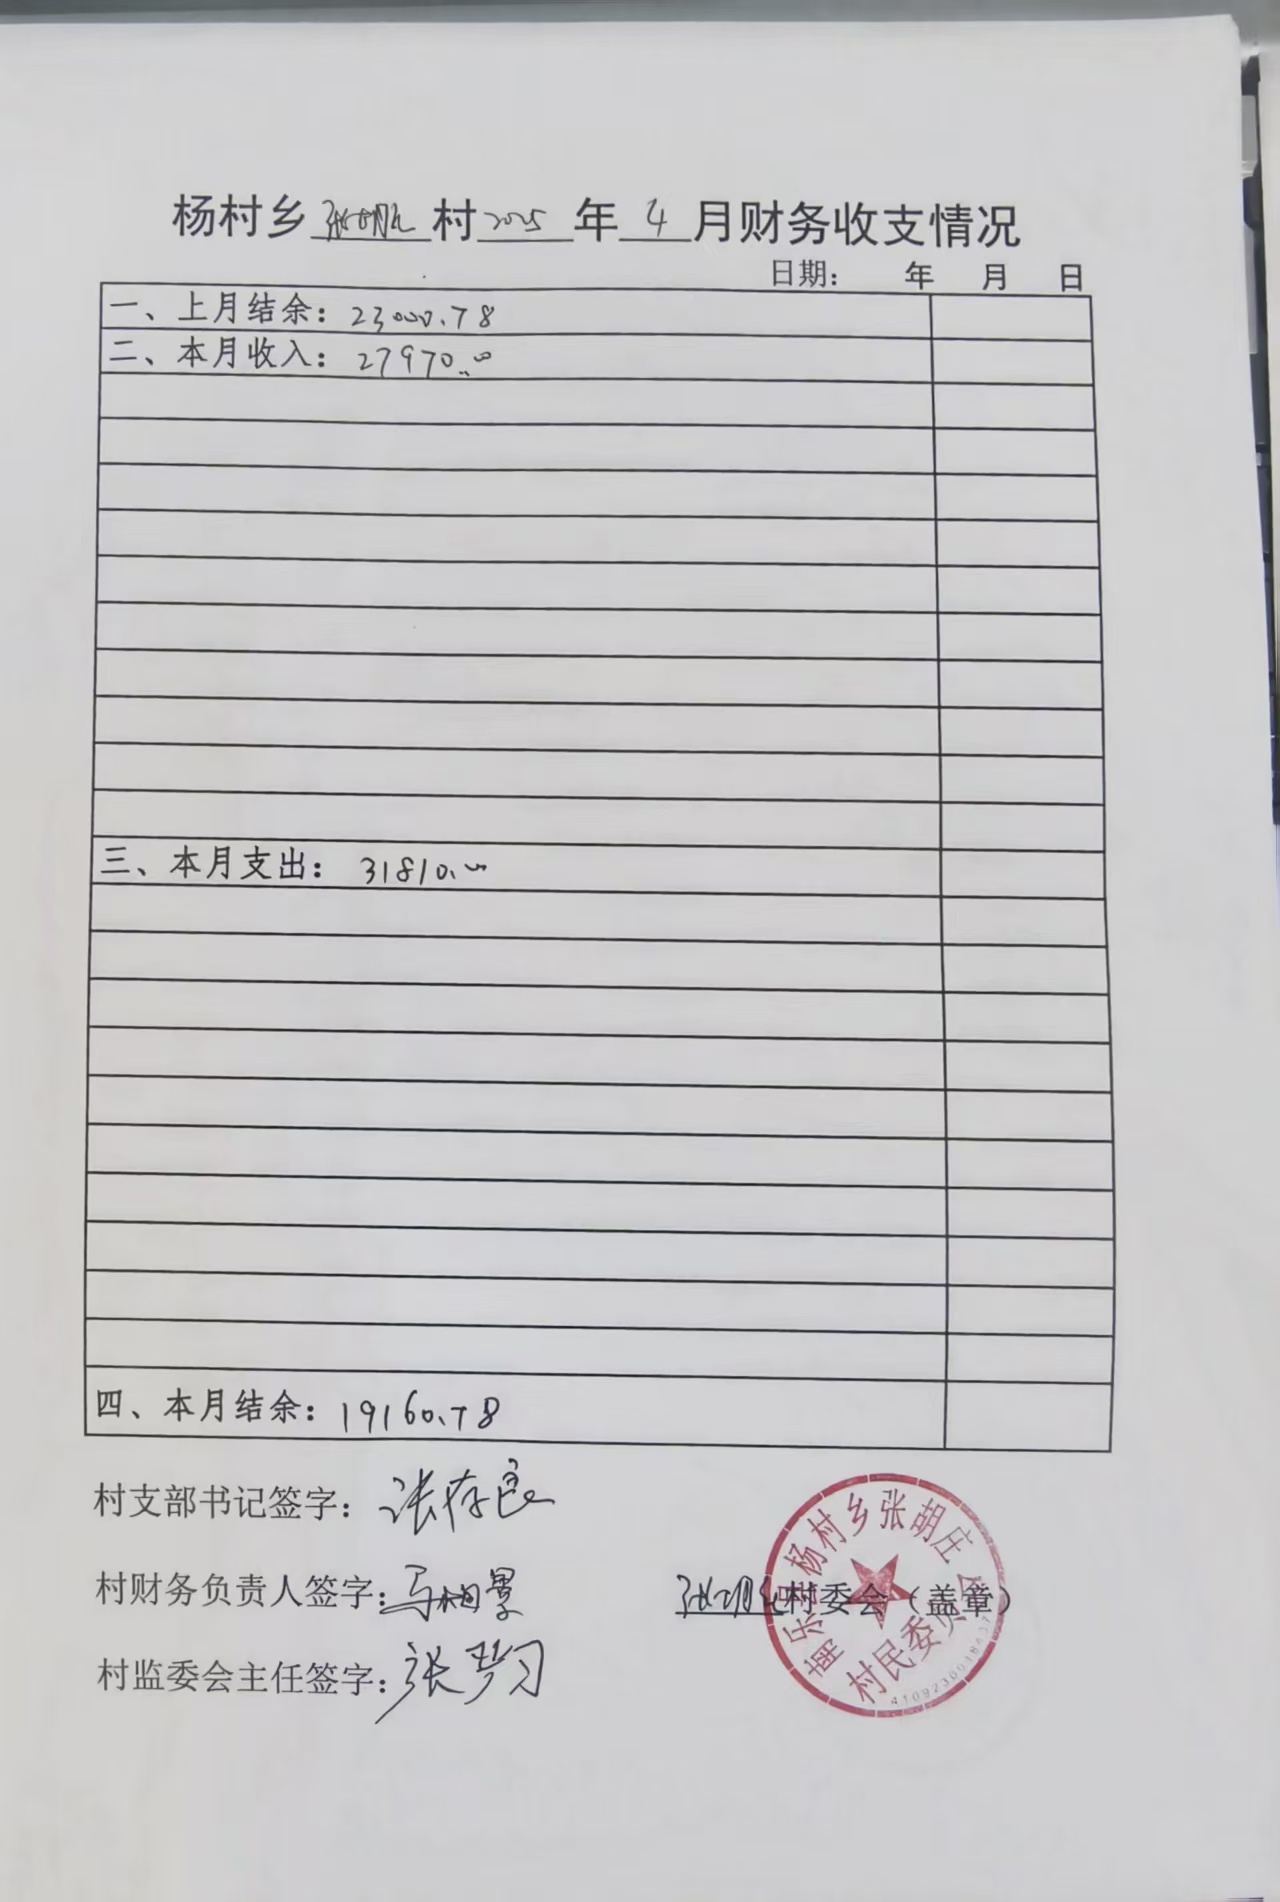 杨村乡张胡庄村2025年4月财务收支情况
日期: 年 月 日
一、上月结余: 23000.78
二、本月收入: 27970.00
三、本月支出: 31810.00
四、本月结余: 19160.78
村支部书记签字: 张存良
村财务负责人签字: 马相景
村监委会主任签字: 张梦习
张胡庄村委会(盖章)
南乐县杨村乡张胡庄
村民委员会